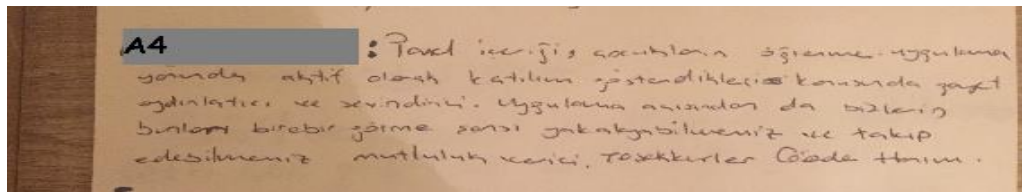 A4 : Panel içeriği, çocukların öğrenme-uygulama
yönünde aktif olarak katılım gösterdikleri konusunda gayet
aydınlatıcı ve sevindirici. Uygulama açısından da bizlerin
bunları birebir görme şansı yakalayabilmemiz ve takip
edebilmemiz mutluluk verici. Teşekkürler Gözde Hanım.